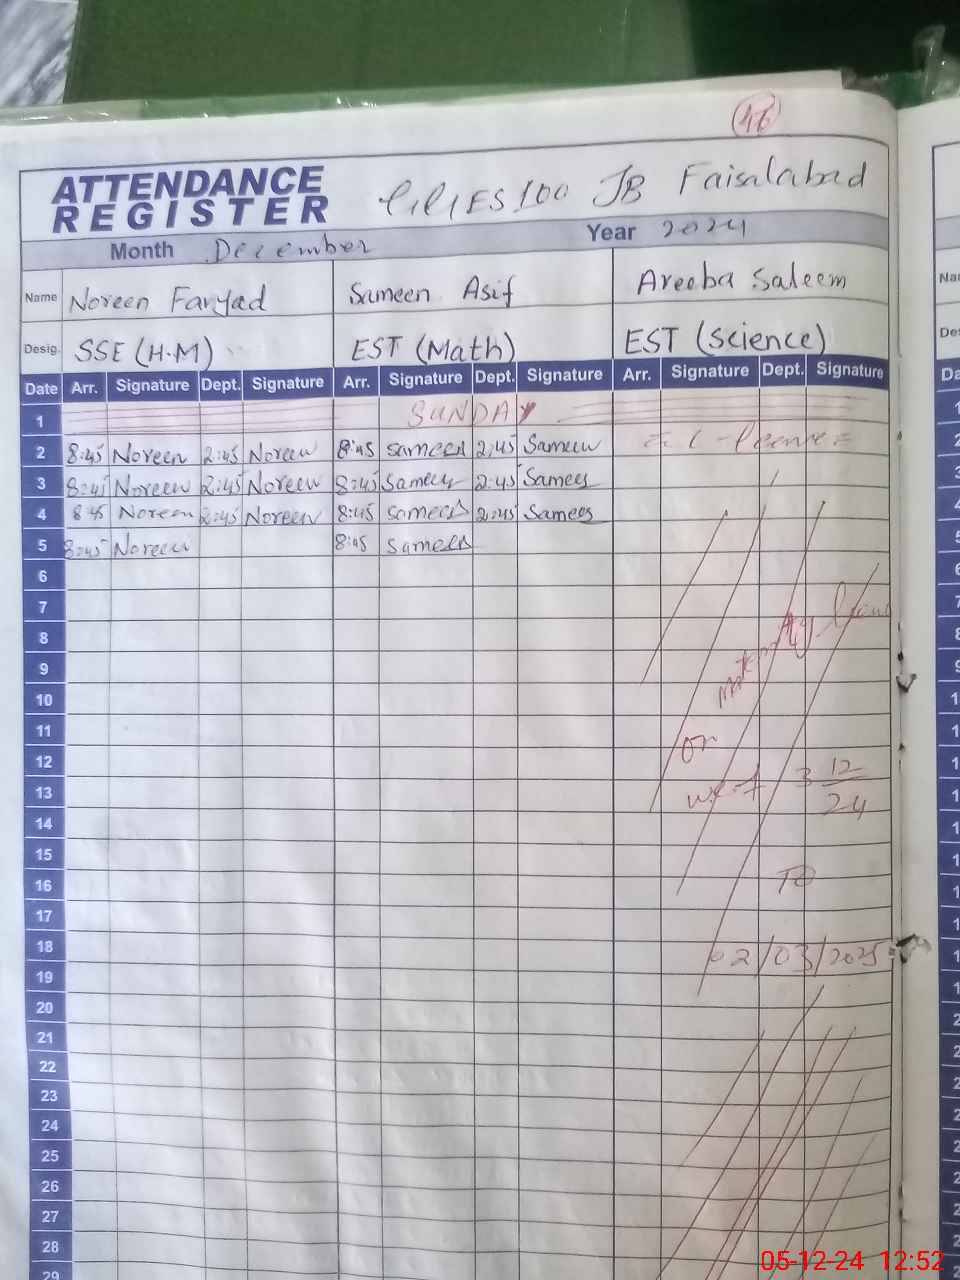 46
ATTENDANCE
REGISTER
GGES 100 JB Faisalabad
Month December Year 2024
Name Noreen Faryad Sameen Asif Areeba Saleem
Desig. SSE (H.M) EST (Math) EST (Science)
Date Arr. Signature Dept. Signature Arr. Signature Dept. Signature Arr. Signature Dept. Signature
1 SUNDAY
2 8:45 Noreen 2:45 Noreen 8:45 Sameen 2:45 Sameen
3 8:45 Noreen 2:45 Noreen 8:45 Sameen 2:45 Sameen
4 8:45 Noreen 2:45 Noreen 8:45 Sameen 2:45 Sameen
5 8:45 Noreen 8:45 Sameen
6
7
8
9
10
11
12
13
14
15
16
17
18
19
20
21
22
23
24
25
26
27
28
29
on maternity leave
w.e.f 3 12/24
To
02/03/2025
05-12-24 12:52